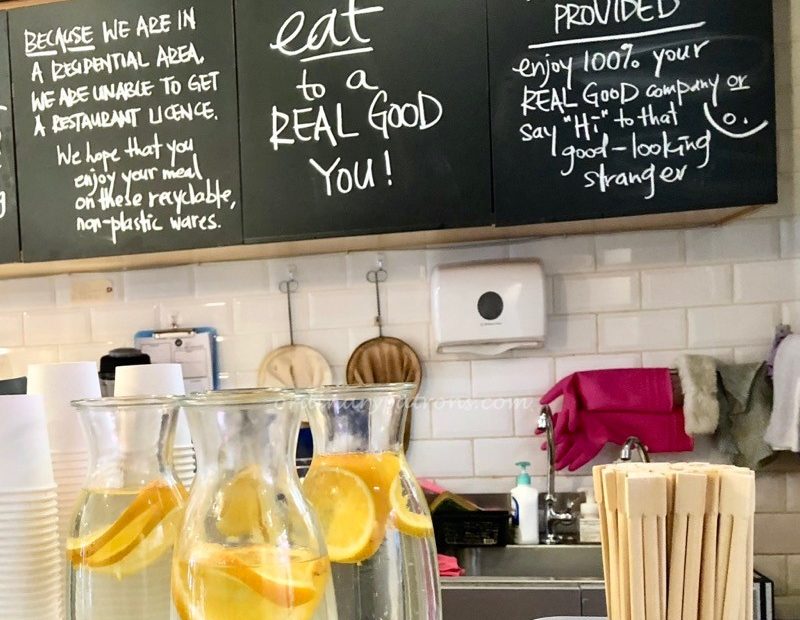 BECAUSE WE ARE IN
A RESIDENTIAL AREA,
WE ARE UNABLE TO GET
A RESTAURANT LICENCE.
We hope that you
enjoy your meal
on these recyclable,
non-plastic wares.
eat
to a
REAL GOOD
YOU!
PROVIDED
enjoy 100% your
REAL GOOD company or
say "Hi" to that
good-looking
stranger
ordinarypatrons.com